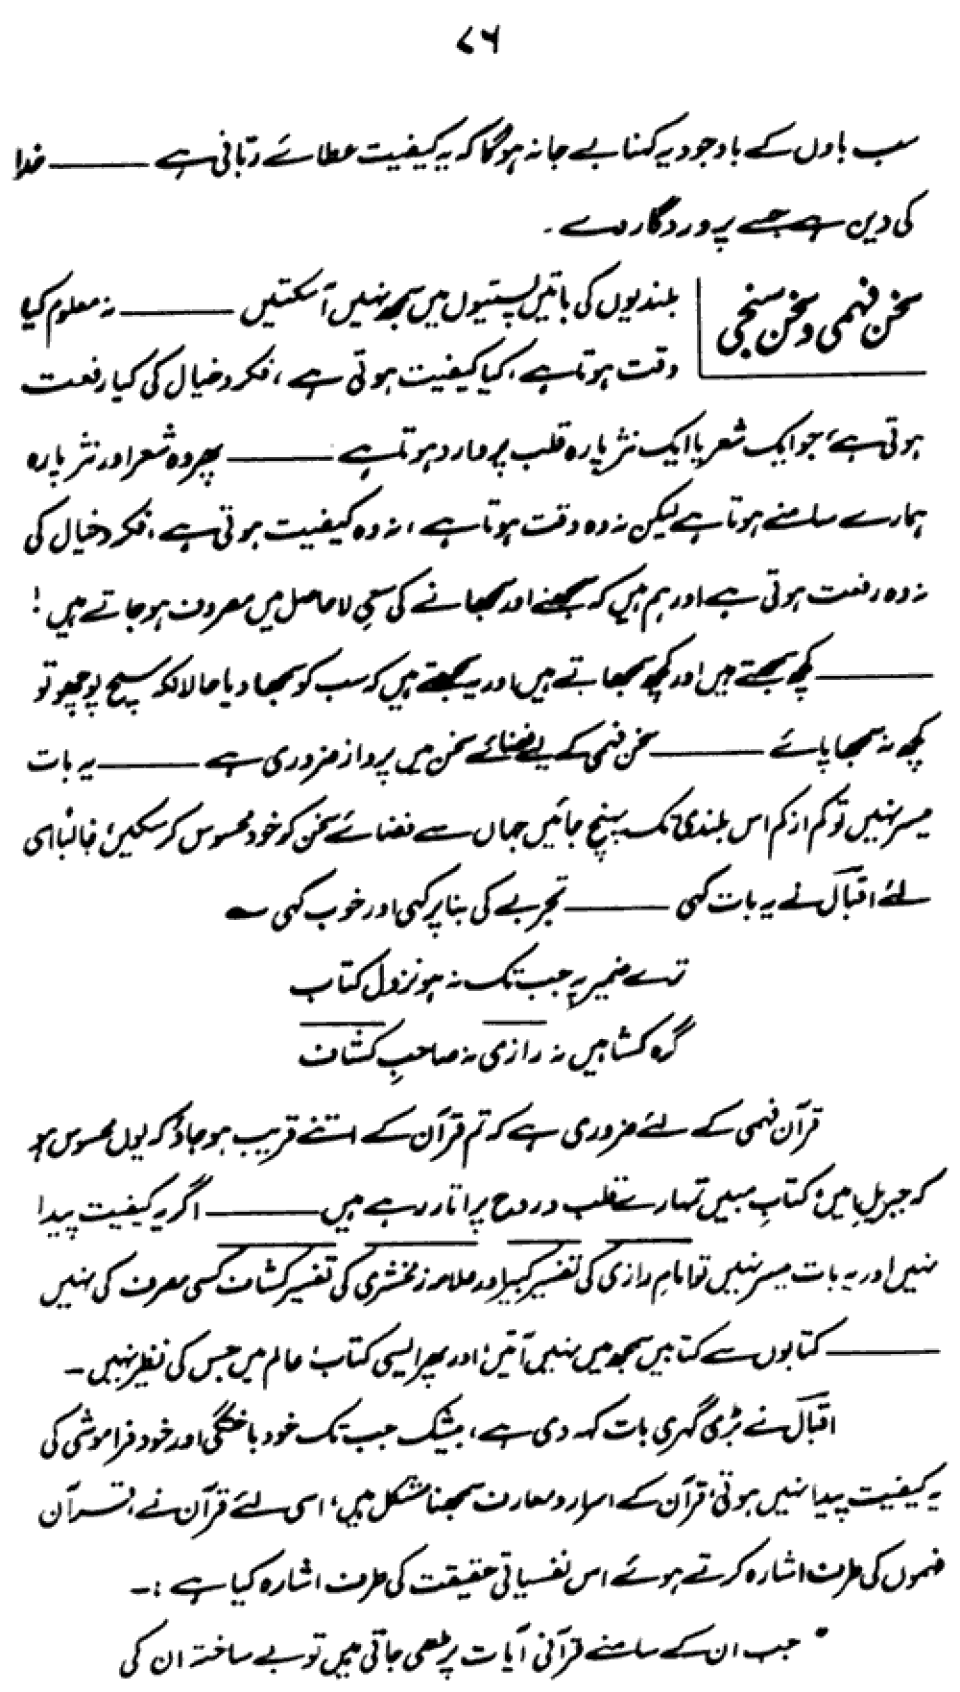 ۷۶
سب باوں کے باوجود یہ کہنا بے جا نہ ہوگا کہ یہ کیفیت عطائے ربّانی ہے ——— خدا
کی دین ہے جسے پروردگار دے ۔
سخن فہمی و سخن سنجی
بلندیوں کی باتیں پستیوں میں سمجھ نہیں آسکتیں ——— نہ معلوم کیا
وقت ہوتا ہے ، کیا کیفیت ہوتی ہے ، فکر و خیال کی کیا رفعت
ہوتی ہے ، جو ایک شعر یا ایک نثر پارہ قلب پر وارد ہوتا ہے ——— پھر وہ شعر اور نثر پارہ
ہمارے سامنے ہوتا ہے لیکن نہ وہ وقت ہوتا ہے ، نہ وہ کیفیت ہوتی ہے ، فکر و خیال کی
نہ وہ رفعت ہوتی ہے اور ہم ہیں کہ سمجھنے اور سمجھانے کی سعیِ لاحاصل میں مصروف ہو جاتے ہیں !
——— کچھ سمجھتے ہیں اور کچھ سمجھاتے ہیں اور یہ سمجھتے ہیں کہ سب کو سمجھا دیا حالانکہ سچ پوچھو تو
کچھ نہ سمجھا پائے ——— سخن فہمی کے لیے فضائے سخن میں پرواز ضروری ہے ——— یہ بات
میسر نہیں تو کم از کم اس بلندی تک پہنچ جائیں جہاں سے فضائے سخن کو خود محسوس کر سکیں ، غالباً اسی
لئے اقبالؔ نے یہ بات کہی ——— تجربے کی بنا پر کہی اور خوب کہی ؎
ترے ضمیر پہ جب تک نہ ہو نزولِ کتاب
گرہ کشا ہیں نہ رازی نہ صاحبِ کشاف
قرآن فہمی کے لئے ضروری ہے کہ تم قرآن کے اتنے قریب ہو جاؤ کہ یوں محسوس ہو
کہ جبریلِ امیں ، کتابِ مبیں تمہارے قلب و روح پر اتار رہے ہیں ——— اگر یہ کیفیت پیدا
نہیں اور یہ بات میسر نہیں تو امام رازی کی تفسیر کبیر اور علامہ زمخشری کی تفسیر کشاف کسی مصرف کی نہیں
——— کتابوں سے کتابیں سمجھ میں نہیں آتیں ، اور پھر ایسی کتاب ، عالم میں جس کی نظیر نہیں ۔
اقبالؔ نے بڑی گہری بات کہہ دی ہے ، بیشک جب تک خود باختگی اور خود فراموشی کی
یہ کیفیت پیدا نہیں ہوتی ، قرآن کے اسرار و معارف سمجھنا مشکل ہیں ، اسی لئے قرآن نے ، قرآن
فہموں کی طرف اشارہ کرتے ہوئے اس نفسیاتی حقیقت کی طرف اشارہ کیا ہے :۔
" جب ان کے سامنے قرآنی آیات پڑھی جاتی ہیں تو بے ساختہ ان کی